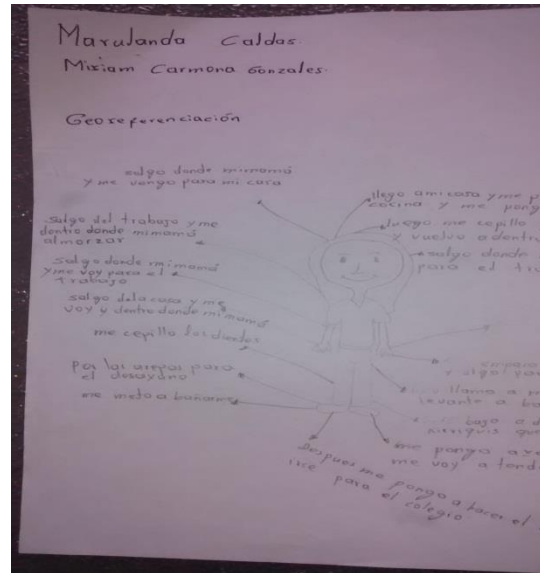 Marulanda Caldas.
Miriam Carmona Gonzales.
Georeferenciación
salgo donde mi mamá
y me vengo para mi casa
salgo del trabajo y me
dentro donde mi mamá
almorzar
salgo donde mi mamá
y me voy para el
trabajo
salgo dela casa y me
voy y dentro donde mi mamá
me cepillo los dientes
Por las arepas para
el desayuno
me meto a bañarme
llego ami casa y me
cocina y me pong
luego me cepillo
y vuelvo a dentr
salgo donde
para el tra
y algos par
llama a m
levante a ba
bajo a d
que
me pongo a
me voy a tend
Despues me pongo a hacer el
irse para el colegio